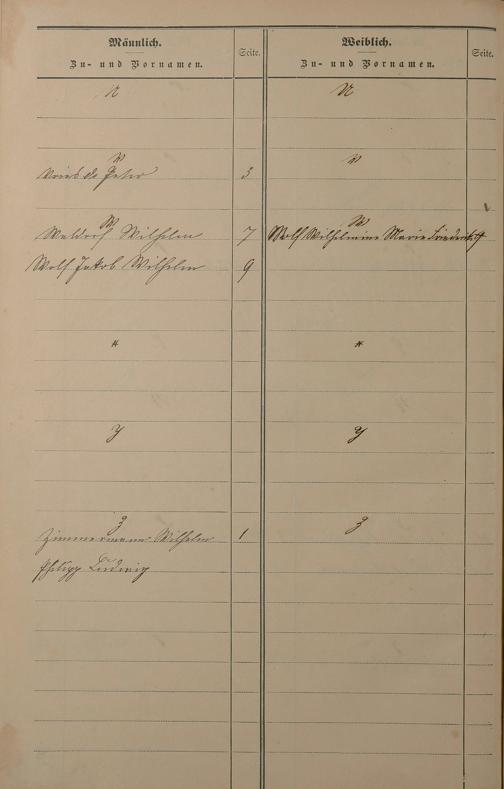 Männlich.
Zu- und Vornamen.
Seite.
U
V
Vries de Peter 3
W
Waldorf Wilhelm 7
Wolf Jakob Wilhelm 9
X
Y
Z
Zimmermann Wilhelm 1
Philipp Ludwig
Weiblich.
Zu- und Vornamen.
Seite.
U
V
W
Wolf Wilhelmine Marie
X
Y
Z